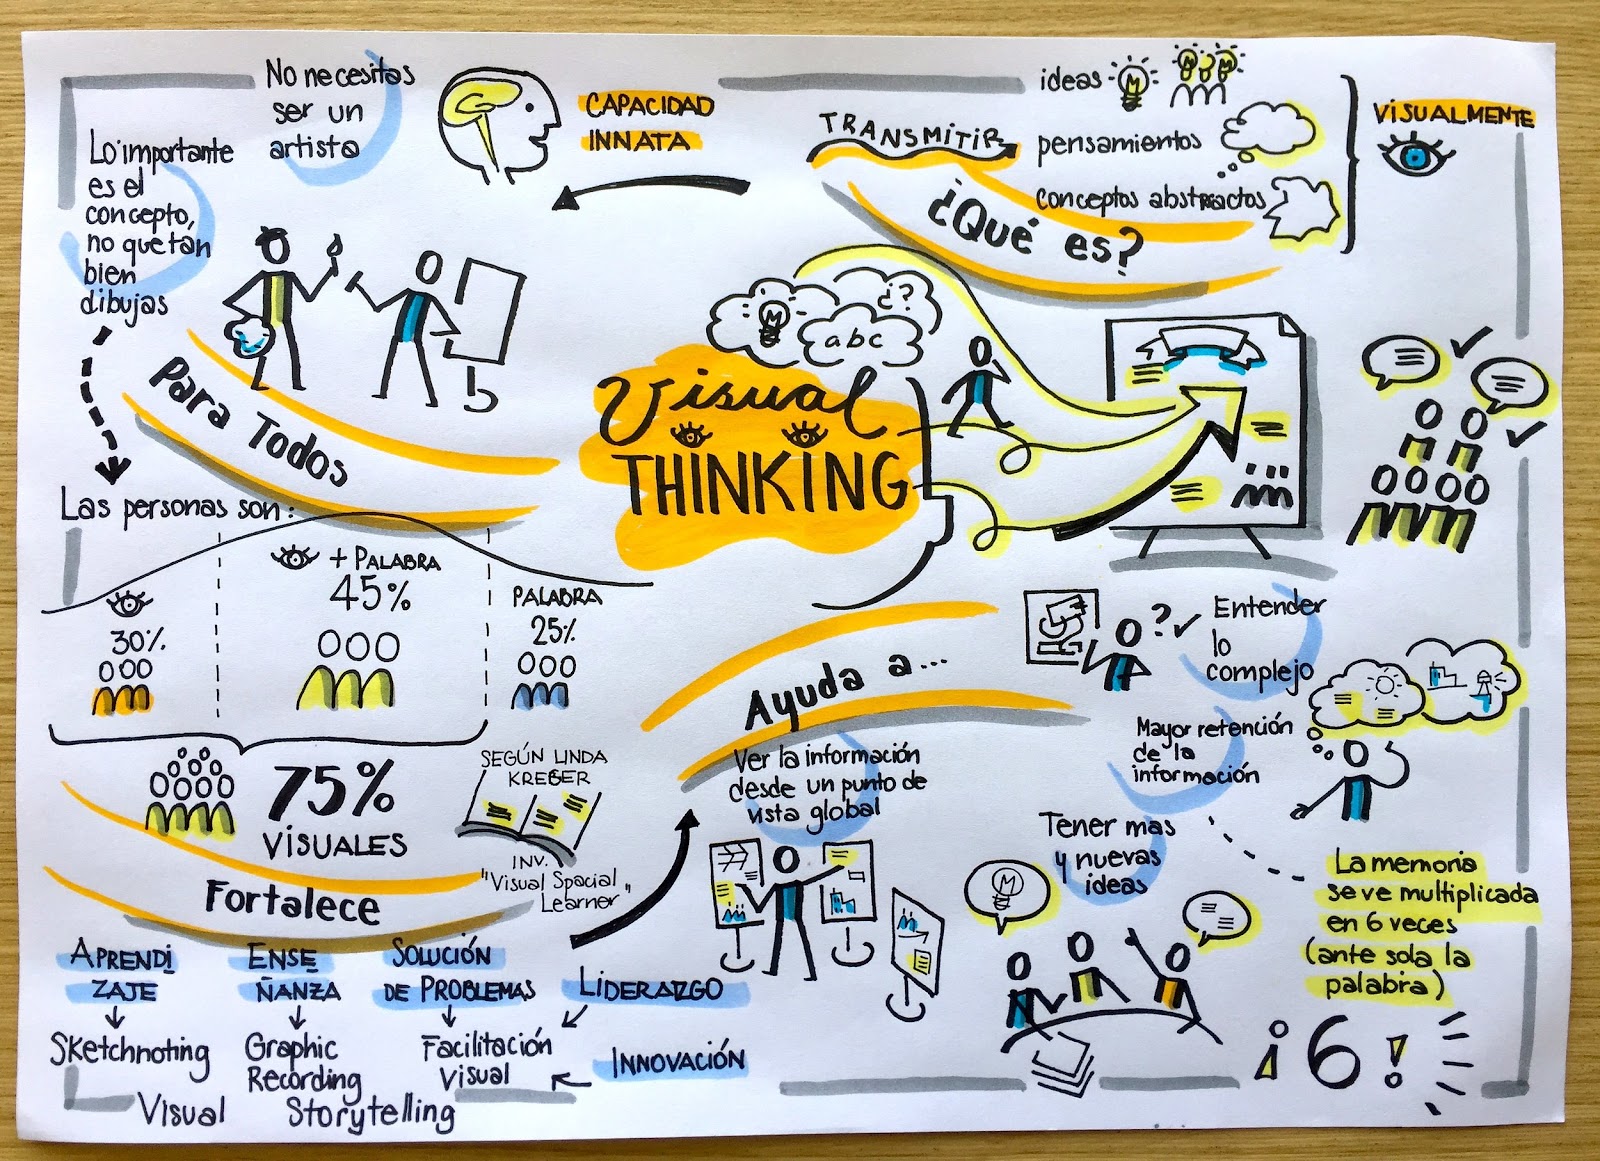 No necesitas
ser un
artista
CAPACIDAD
INNATA
Lo importante
es el
concepto,
no que tan
bien
dibujas
TRANSMITIR
ideas
pensamientos
conceptos abstractos
VISUALMENTE
¿Qué es?
¿?
abc
Visual
THINKING
Para Todos
Las personas son:
30%
+ PALABRA
45%
PALABRA
25%
75%
VISUALES
SEGÚN LINDA
KREGER
INV.
"Visual Spacial
Learner"
Fortalece
APRENDI
ZAJE
Sketchnoting
ENSE
ÑANZA
Graphic
Recording
SOLUCIÓN
DE PROBLEMAS
Facilitación
Visual
LIDERAZGO
INNOVACIÓN
Visual Storytelling
Ayuda a...
Ver la información
desde un punto de
vista global
?
Entender
lo
complejo
Mayor retención
de la
información
Tener mas
y nuevas
ideas
La memoria
se ve multiplicada
en 6 veces
(ante sola la
palabra)
¡6!